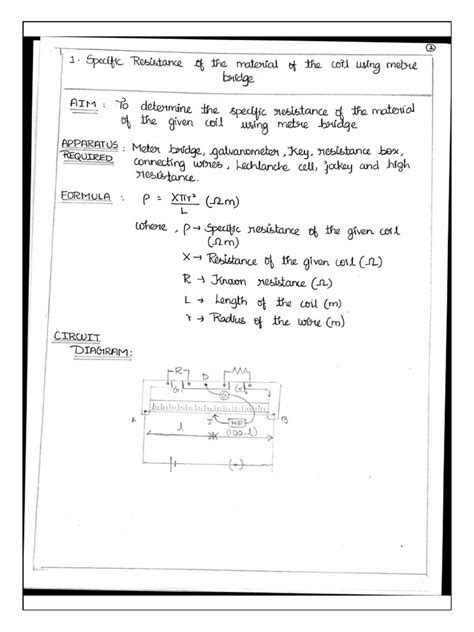 1
1. Specific Resistance of the material of the coil using metre
bridge
AIM : To determine the specific resistance of the material
of the given coil using metre bridge
APPARATUS REQUIRED : Meter bridge, galvanometer, Key, resistance box,
connecting wires, Lechlanche cell, jockey and high
resistance.
FORMULA : ρ = Xπr²/L (Ωm)
where, ρ → Specific resistance of the given coil
(Ωm)
X → Resistance of the given coil (Ω)
R → Known resistance (Ω)
L → Length of the coil (m)
r → Radius of the wire (m)
CIRCUIT
DIAGRAM:
R D
G₁ G G₂
A J HR B
l (100-l)